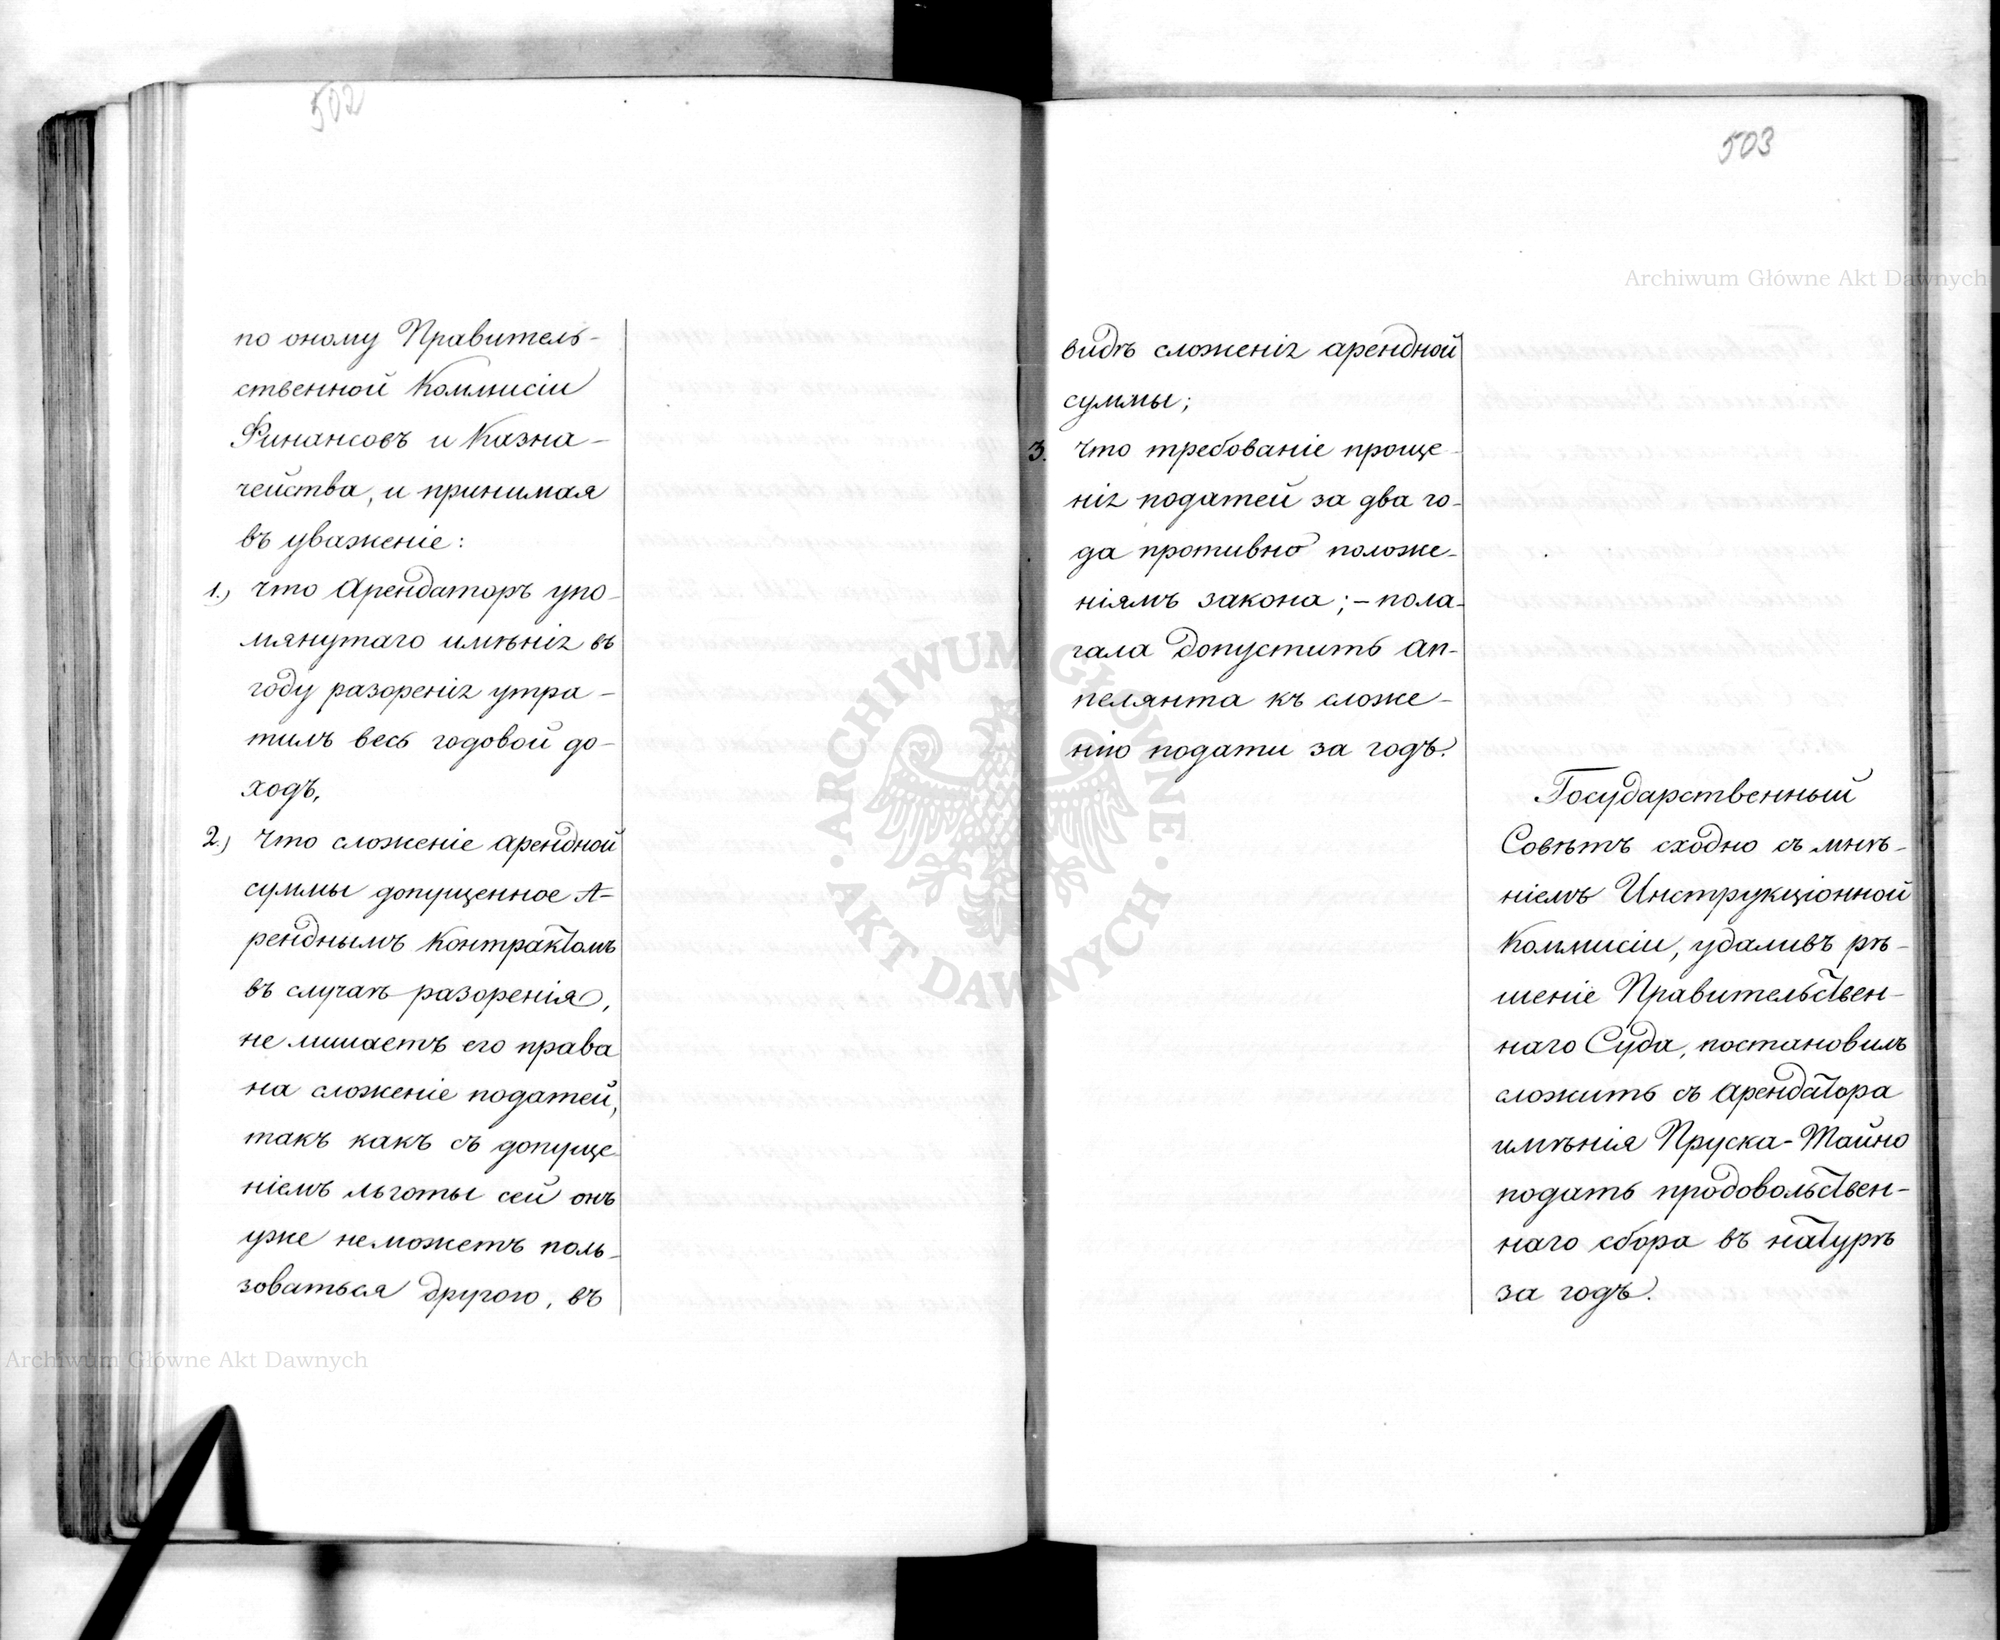 502
по оному Правитель-
ственной Коммисіи
Финансовъ и Казна-
чейства, и принимая
въ уваженіе:
1.) что Арендаторъ упо-
мянутаго имѣнія въ
году разоренія утра-
тилъ весь годовой до-
ходъ,
2.) что сложеніе арендной
суммы допущенное А-
ренднымъ Контрактомъ
въ случаѣ разоренія,
не лишаетъ его права
на сложеніе податей,
такъ какъ съ допуще
ніемъ льготы сей онъ
уже не можетъ поль-
зоваться другою, въ
503
видѣ сложенія арендной
суммы;
3. что требованіе проще-
нія податей за два го-
да противно положе-
ніямъ закона; - пола-
гала допустить ап-
пелянта къ сложе-
нію подати за годъ.
Государственный
Совѣтъ сходно съ мнѣ-
ніемъ Инструкціонной
Коммисіи, удаливъ рѣ-
шеніе Правительствен-
наго Суда, постановилъ
сложить съ арендатора
имѣнія Пруска-Тайно
подать продовольствен-
наго сбора въ натурѣ
за годъ.
Archiwum Główne Akt Dawnych
ARCHIWUM GŁÓWNE · AKT DAWNYCH ·
Archiwum Główne Akt Dawnych